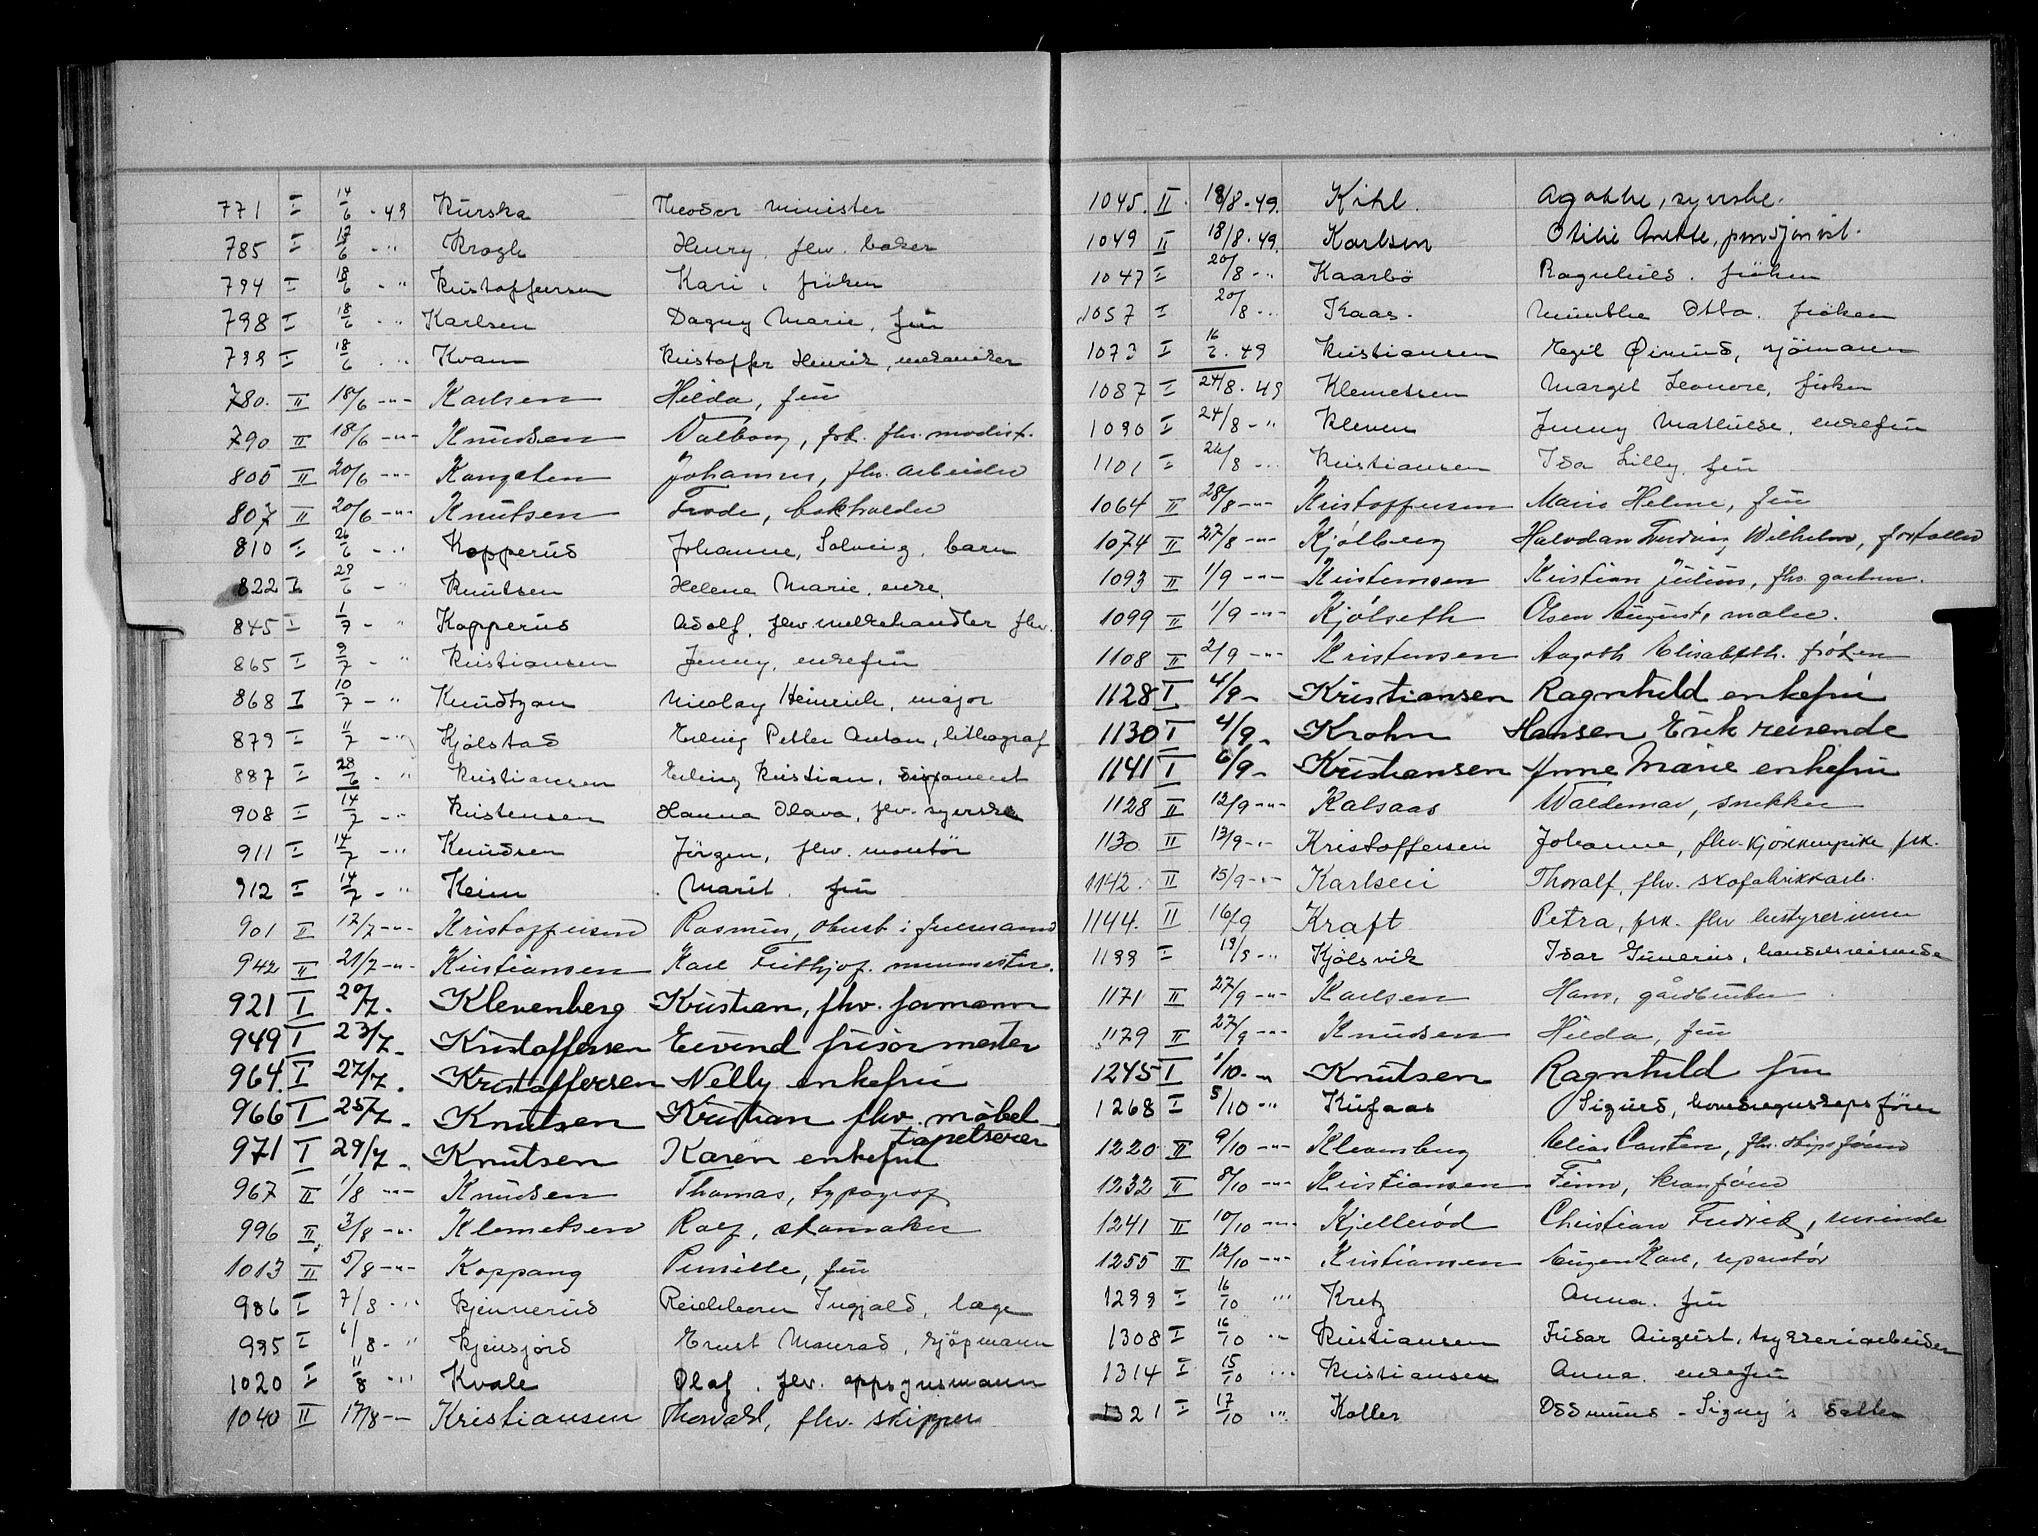 771 I 14/6 - 49 Kurska Theodor minister
785 I 17/6 - " Krogh Henry, fhv. baker
794 I 18/6 - " Kristoffersen Kari, frøken
798 I 18/6 - " Karlsen Dagny Marie, fru
799 I 18/6 - " Kvam Kristoffer Henrik, mekaniker
780. II 18/6 -"- Karlsen Hilda, fru
790 II 18/6 -"- Knudsen Valborg, frk. fhv. modist.
805 II 20/6 -"- Kongelen Johannes, fhv. arbeider
807 II 20/6 -"- Knutsen Frode, bokholder
810 I 26/6 - " Kopperud Johanne, Solveig, barn
822 I 29/6 - Knutsen Helene Marie, enke,
845 I 1/7 - " Kopperud Adolf, fhv melkehandler fhv.
865 I 9/7 - " Kristiansen Jenny, enkefru
868 I 10/7 - " Knudtzon Nicolay Heinrich, major
879 I 11/7 - " Kjølstad Erling Petter Anton, lithograf
887 I 28/6 - " Kristiansen Erling Kristian, disponent
908 I 14/7 - " Kristensen Hanna Olava, fhv. syerske
911 I 14/7 - " Knudsen Jørgen, fhv. montør
912 I 14/7 - " Keim Marit. fru
901 II 17/7 -"- Kristoffersen Rasmus, oberst i frelsesarmé
942 II 21/7 -"- Kristiansen Karl Frithjof. murmester.
921 I 20/7. Klevenberg Kristian, fhv. formann
949 I 23/7 - Kristoffersen Eivind frisørmester
964. I 27/7. Kristoffersen Nelly enkefru
966 I 25/7. Knutsen Kristian fhv. møbel-
tapetserer
971 I 29/7 - Knutsen Karen enkefru
967 II 1/8 -"- Knudsen Thomas, typograf
996 II 3/8 -"- Klemetsen Rolf, skomaker
1013 II 5/8 -"- Koppang Pernille, fru
986 I 7/8 - " Kjennerud Reichborn Ingjald, læge
995 I 6/8 - " Kjensjord Ernst Konrad, kjøpmann
1020 I 11/8 - " Kvale Olaf, fhv. oppsynsmann
1040 II 17/8 -"- Kristiansen Thorvald, fhv. skipper
1045. II 18/8 - 49. Kihl. Agathe, syerske.
1049 II 18/8 - 49. Karlsen Otilie Anette, pensjonist.
1047 I 20/8 - " Kaarbø Ragnhild. frøken
1057 I 20/8 - " Kaas. Minuthe Otta. frøken
1073 I 16/6 - 49 Kristiansen Egil Øivind, sjømann
1087 I 24/8 - 49 Klemetsen Margit Leonore, frøken
1090 I 24/8 - " Kleven Jenny Mathilde, enkefru
1101 I 26/8 - " Kristiansen Ida Lilly. fru
1064 II 28/8 -"- Kristoffersen Marie Helene, fru
1074 II 27/8 -"- Kjølberg Halvdan Ludvig Wilhelm, forfatter
1093 II 1/9 -"- Kristensen Kristian Julius, fhv. gartner.
1099 II 1/9 -"- Kjølseth Olsen August, maler.
1108 II 2/9 -"- Kristensen Aagoth Elisabeth. frøken
1128 I 4/9 - Kristiansen Ragnhild enkefru
1130 I 4/9 - Krohn Hansen Erik reisende
1141 I 6/9 - Kristiansen Anne Marie enkefru
1128 II 12/9 -"- Kalsaas Waldemar, snekker
1130 II 13/9 -"- Kristoffersen Johanne, fhv. kjøkkenpike frk.
1142. II 15/9 -"- Karlsen Thoralf, fhv. skofabrikkarb.
1144. II 16/9 Kraft Petra, frk. fhv bestyrerinne
1199 I 19/9 - " Kjølsvik Idar Gunerius, handelsreisende
1171 II 27/9 -"- Karlsen Hans, gårdbruker
1179 II 27/9 -"- Knudsen Hilda, fru
1245 I 1/10. " Knutsen Ragnhild fru
1268 I 5/10 - " Kufaas Sigurd, hovedregnskapsfører
1220 II 9/10 -"- Klevensberg Elias Carsten, fhv. skipsfører
1232 II 8/10 -"- Kristiansen Finn, kranfører
1241 II 10/10 -"- Kjellerød Christian Fredrik, reisende
1255 II 12/10 -"- Kristiansen Eugen Karl, reparatør
1299 I 16/10 " Kretz Anna. fru
1308 I 16/10 " Kristiansen Fridar August, bryggeriarbeider
1314 I 15/10 " Kristiansen Anna. enkefru
1321 I 17/10 " Koller Oddmund - Signy's datter